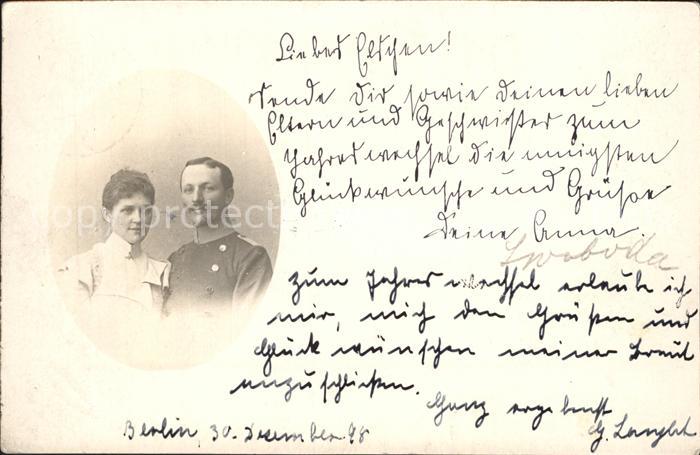 Liebes Elschen!
Sende dir sowie deinen lieben
Eltern und Geschwister zum
Jahreswechsel die innigsten
Glückwünsche und Grüße
deine Anna.
Swoboda
zum Jahreswechsel erlaube ich
mir, mich den Grüßen und
Glückwünschen meiner Braut
anzuschließen.
Ganz ergebenst
Berlin, 30. Dezember 98
G.